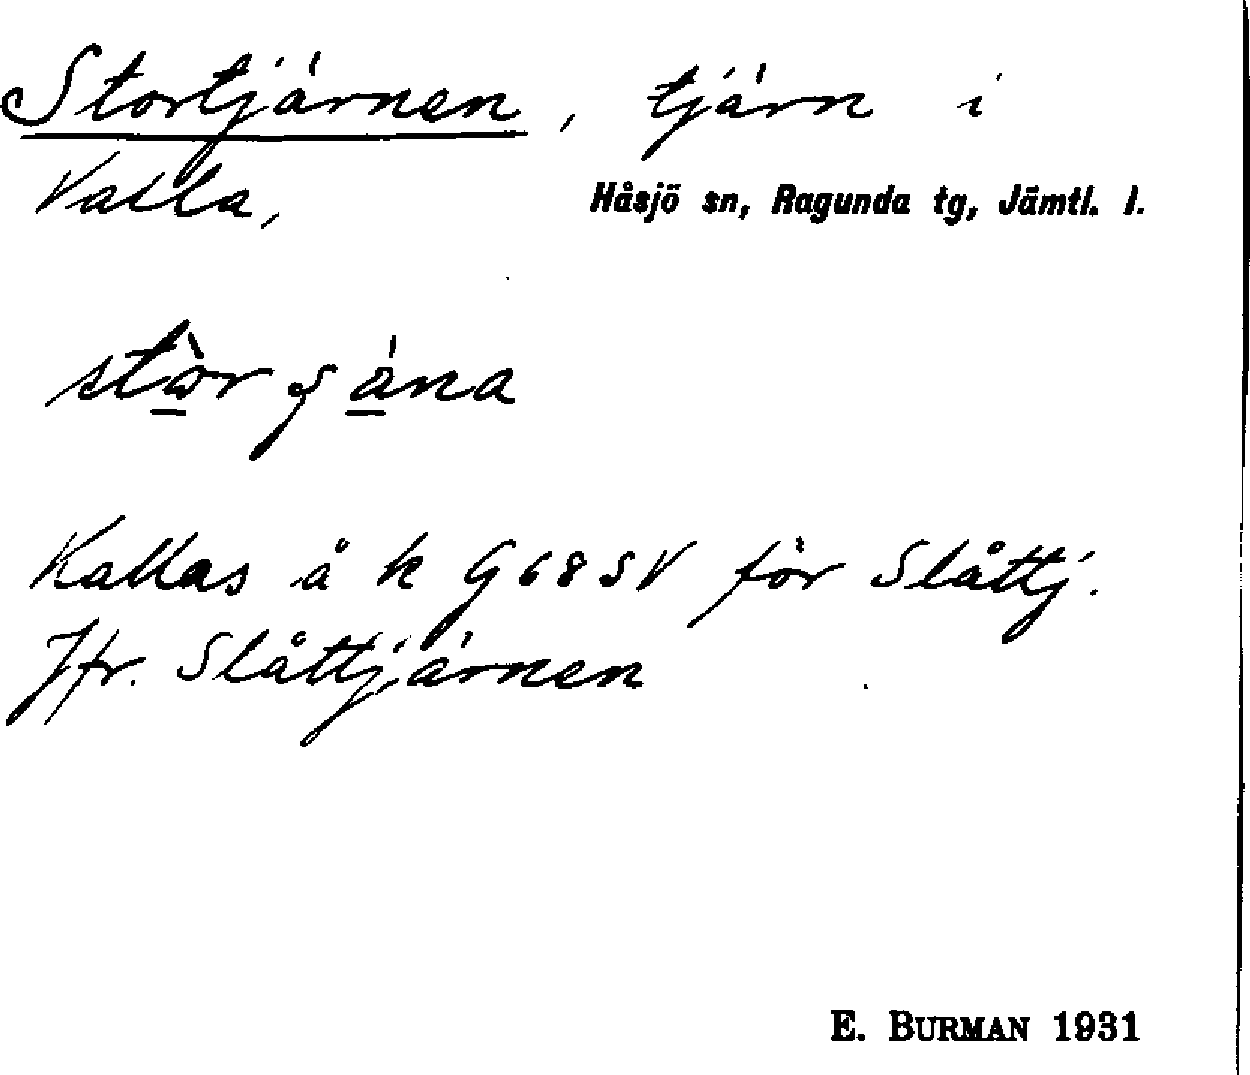 Stortjärnen, tjärn i
Valla, Håsjö sn, Ragunda tg, Jämtl. l.
Kallas å k G68SV för Slåttj.
Jfr. Slåttjärnen
E. BURMAN 1931